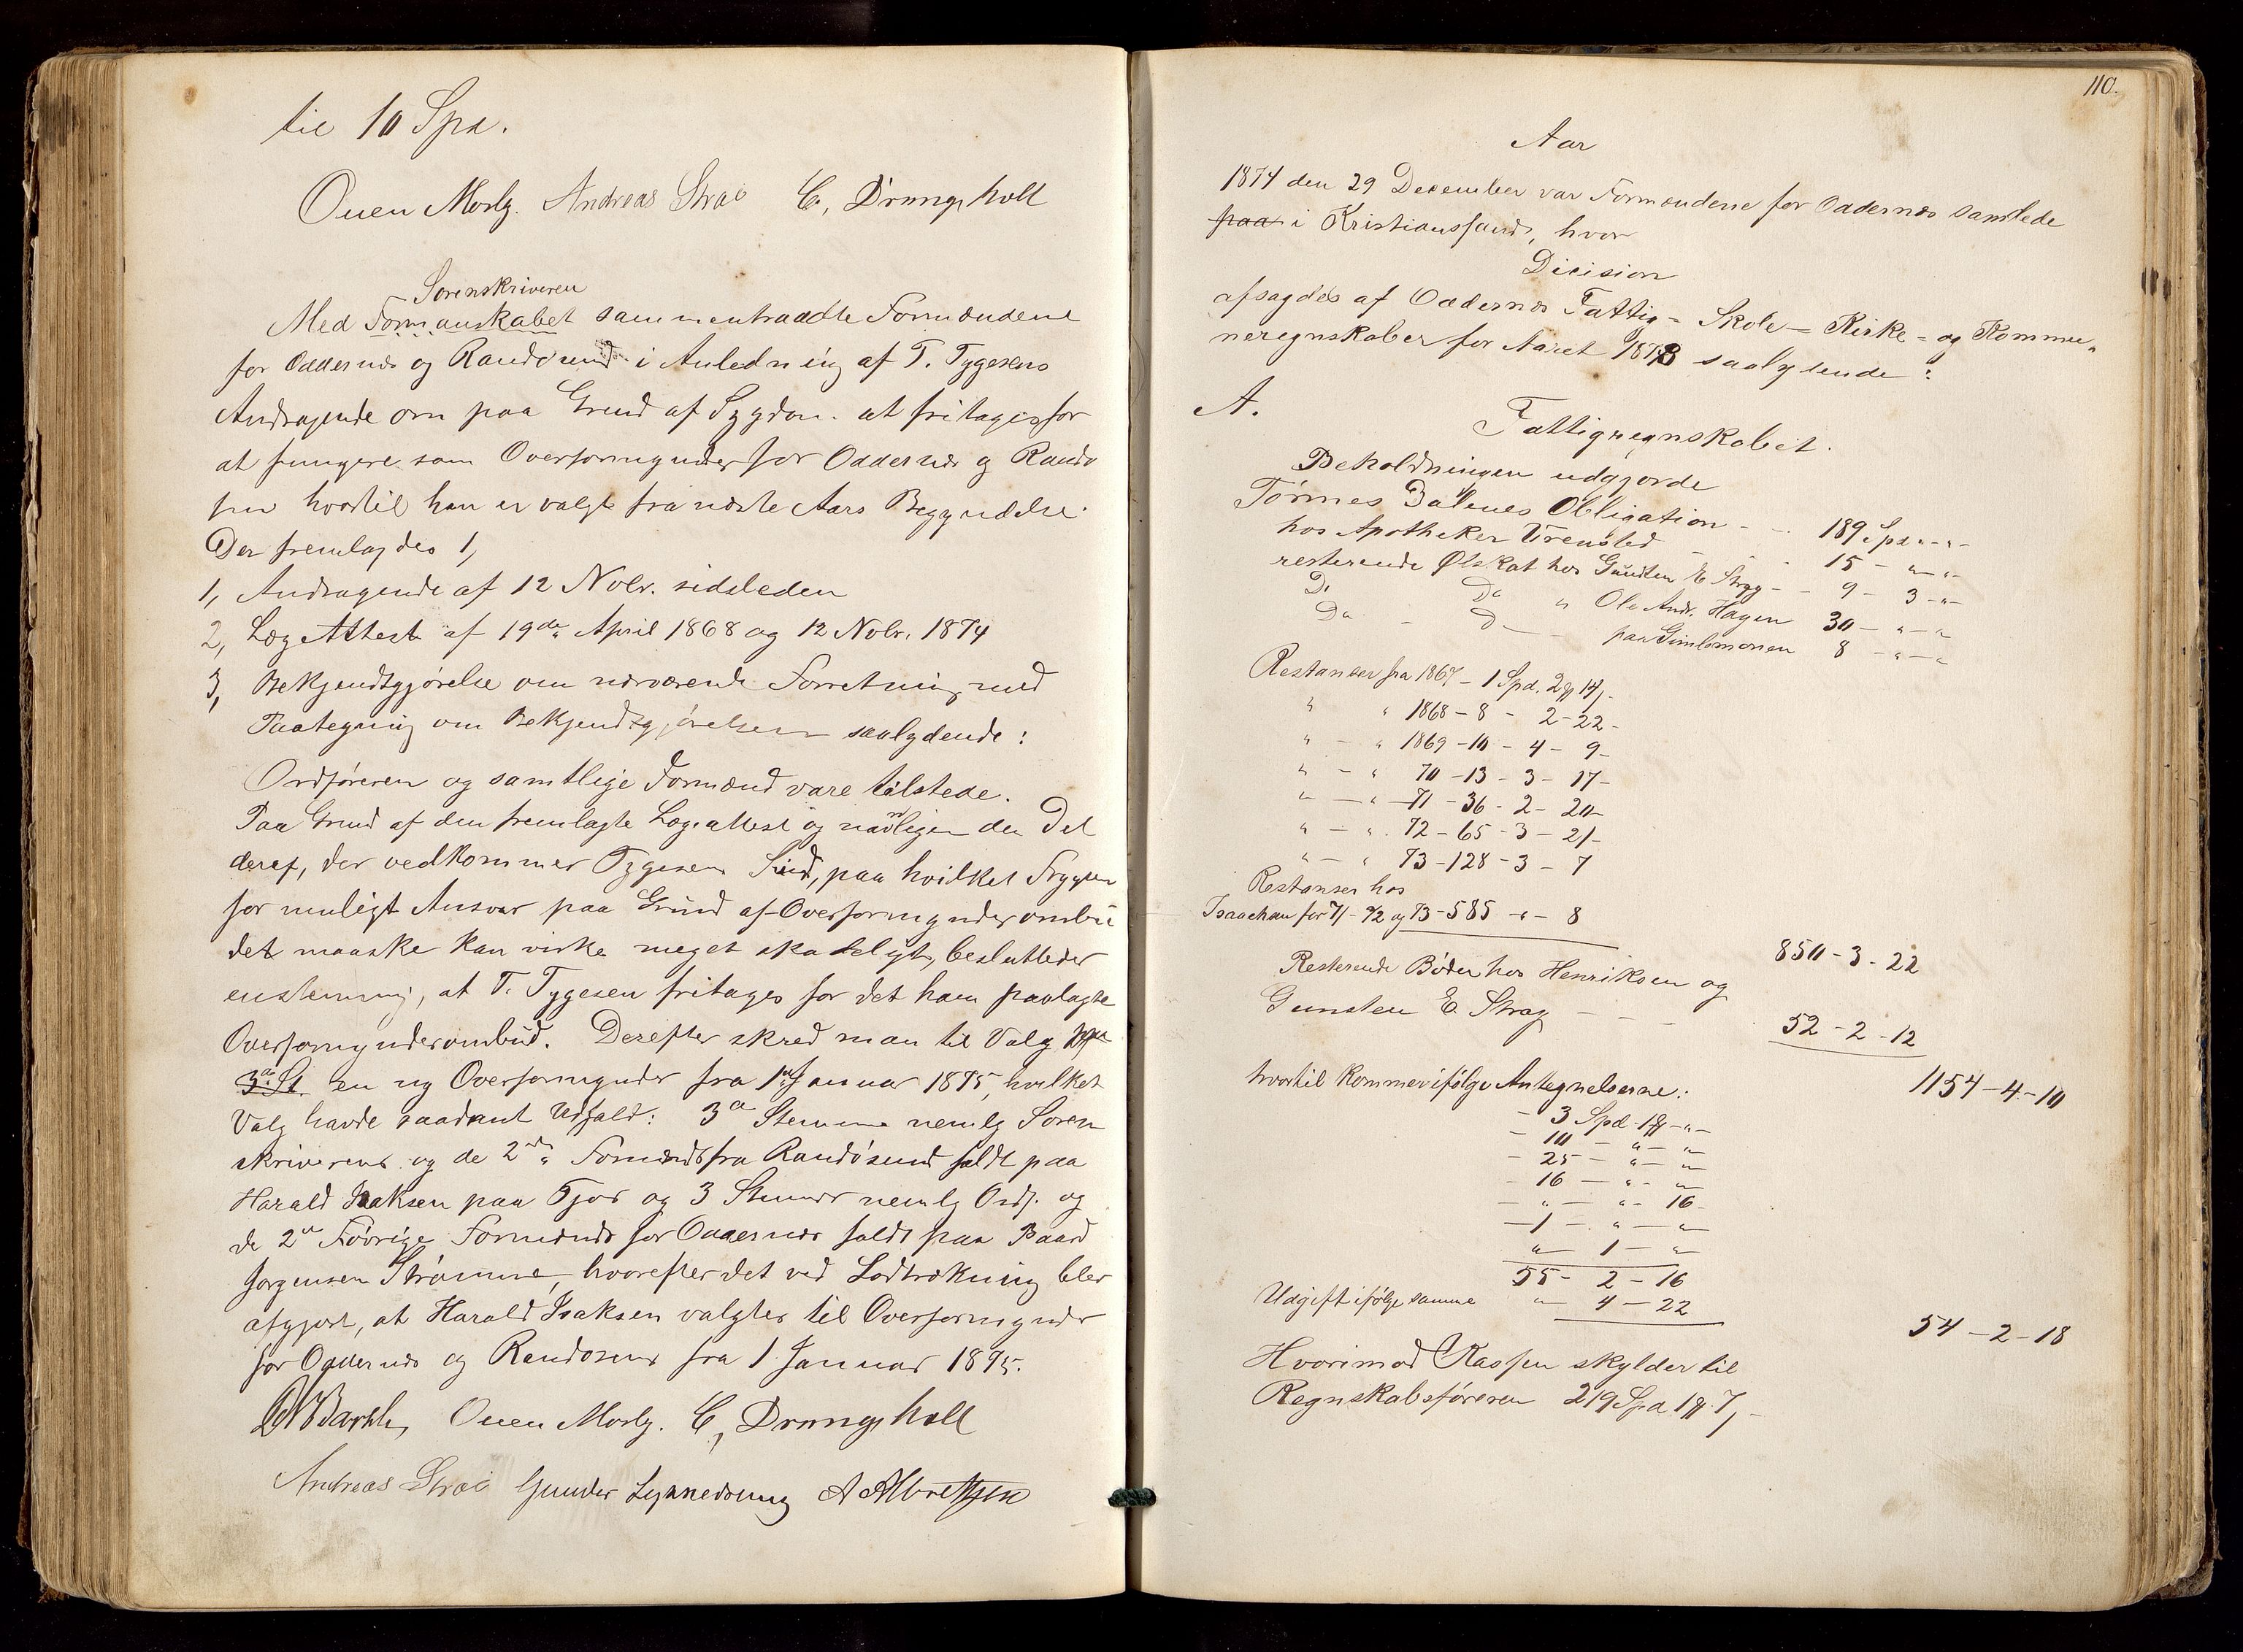 til 10 Spd.
Ouen Mosby. Andreas Strai C, Drangsholt
Sorenskriveren
Med Formanskabet sammentraadte Formændene
for Oddernæs og Randøsund i Anledning af T. Tygesens
Andragende om paa Grund af Sygdom at fritages for
at fungere som Overformynder for Oddernæs og Randø
sun hvortil han er valgt fra næste Aars Begyndelse.
Der fremlagdes 1,
1, Andragende af 12 Novbr. sidsleden
2, Læge Attest af 19de April 1868 og 12 Novbr. 1874
3, Bekjendtgjørelse om nærværende Forretning med
Paategning om Bekjendtgjørelsen saalydende:
Ordføreren og samtlige Formænd vare tilstede.
Paa Grund af den fremlagte Lægeattest og navnligen den Del
deraf, der vedkommer Tygesens Sind, paa hvilket Frygten
for muligt Ansvar paa Grund af Overformynderombu
det maaske kan virke meget skadeligt, beslutledes
enstemmig, at T. Tygesen fritages for det ham paalagte
Overformynderombud. Derefter skred man til Valg paa
3a St. en ny Overformynder fra 1ste Januar 1875, hvilket
Valg havde saadant Udfald: 3a Stemme nemlg Soren
skriverens og de 2de Formænds fra Randøsund faldt paa
Harald Isaksen paa Tjos og 3 Stemmer nemlg Ordf. og
de 2de Føvrige Formænds for Oddernæs faldt paa Baard
Jørgensen Strømme, hvorefter det ved Lodtrækning blev
afgjort, at Harald Isaksen valgtes til Overformynder
for Oddernæs og Randøsund fra 1 Januar 1875.
Ouen Mosby. C, Drangsholt
Andreas Strai Gunder A Albretsen
110.
Aar
1874 den 29 December var Formændene for Oddernæs samlede
paa i Kristianssand, hvor
Dicision
afsagdes af Oddernæs Fattig- Skole- Kirke- og Kommu-
neregnskaber for Aaret 1873 saalydende:
A.
Fattigregnskabet.
Beholdningen udgjorde
Tørnes Dalenes Obligation - - 189 Spd " - "
hos Apotheker Vrensted - - 15 - " - "
resterende Ølskat hos Gunsten E Strag - - 9 - 3 - "
Do Do " Ole Andr. Hagen 30 - " - "
Do - Do - paa Gimlemoen 8 - " - "
Restanser fra 1867 - 1 Spd. 2 ₰ 14 ₰
" " 1868 - 8 - 2 - 22 -
" - " 1869 - 10 - 4 - 9 -
" - " 70 - 13 - 3 - 17 -
" - " - 71 - 36 - 2 - 20 -
" - " . 72 - 65 - 3 - 21 -
" - " 73 - 128 - 3 - 7
Restanser hos
Isaachsen for 71 - 72 og 73 - 585 - " - 8
850 - 3 - 22
Resterende Bøder hos Henriksen og
Gunsten E. Strag - - - 52 - 2 - 12
1154 - 4 - 10
hvortil kommer ifølge Antegnelserne:
- 3 Spd - 1 ₰ - " -
- 10 - " - "
- 25 - " - "
- 16 - " - "
- " - " - 16 -
- 1 - " - "
" - 1 - "
55 - 2 - 16
Udgift ifølge samme " - 4 - 22
54 - 2 - 18
Hvorimod Kassen skylder til
Regnskabsføreren 219 Spd 1 ₰ 7 ₰ -